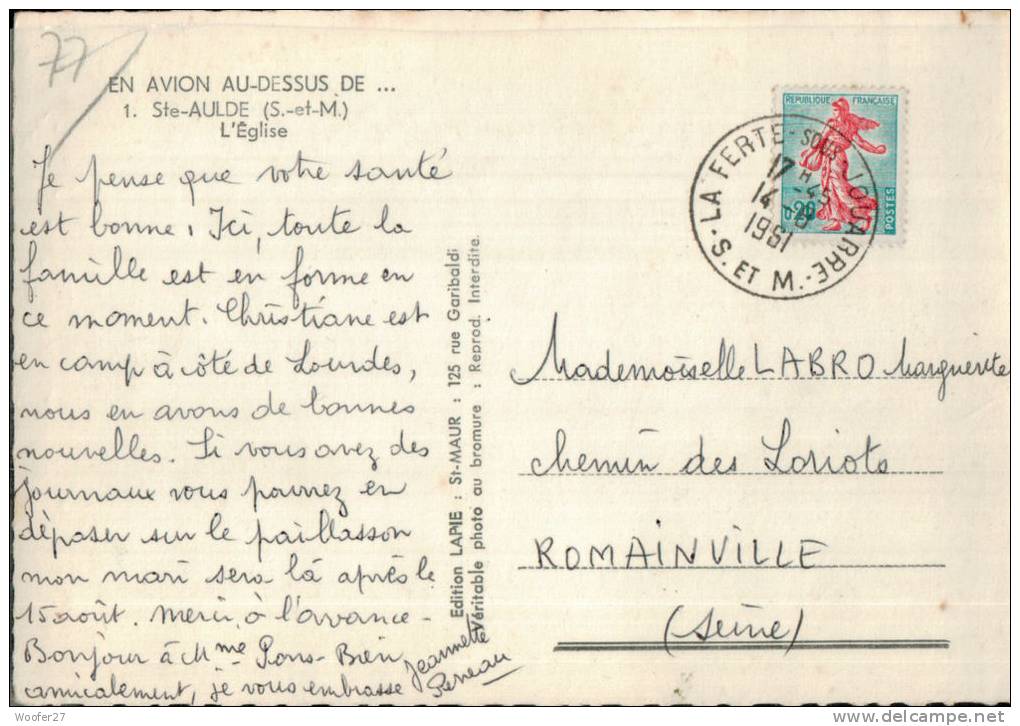 77
EN AVION AU-DESSUS DE ...
1. Ste-AULDE (S.-et-M.)
L'Église
Je pense que votre santé
est bonne; Ici, toute la
famille est en forme en
ce moment. Christiane est
en camp à côté de Lourdes,
nous en avons de bonnes
nouvelles. Si vous avez des
journaux vous pourrez en
déposer sur le paillasson
mon mari sera là après le
15 août. Merci à l'avance-
Bonjour à Mme Pons-Bien
amicalement, je vous embrasse
Jeannette
Edition LAPIE : St-MAUR : 125 rue Garibaldi
Véritable photo au bromure : Reprod. Interdite.
REPUBLIQUE FRANÇAISE
0,20
POSTES
LA FERTE-SOUS-JOUARRE
17 H
14 -8
1961
S. ET M.
Mademoiselle LABRO Marguerite
chemin des Loriots
ROMAINVILLE
(Seine)
Woofer27
www.delcampe.net